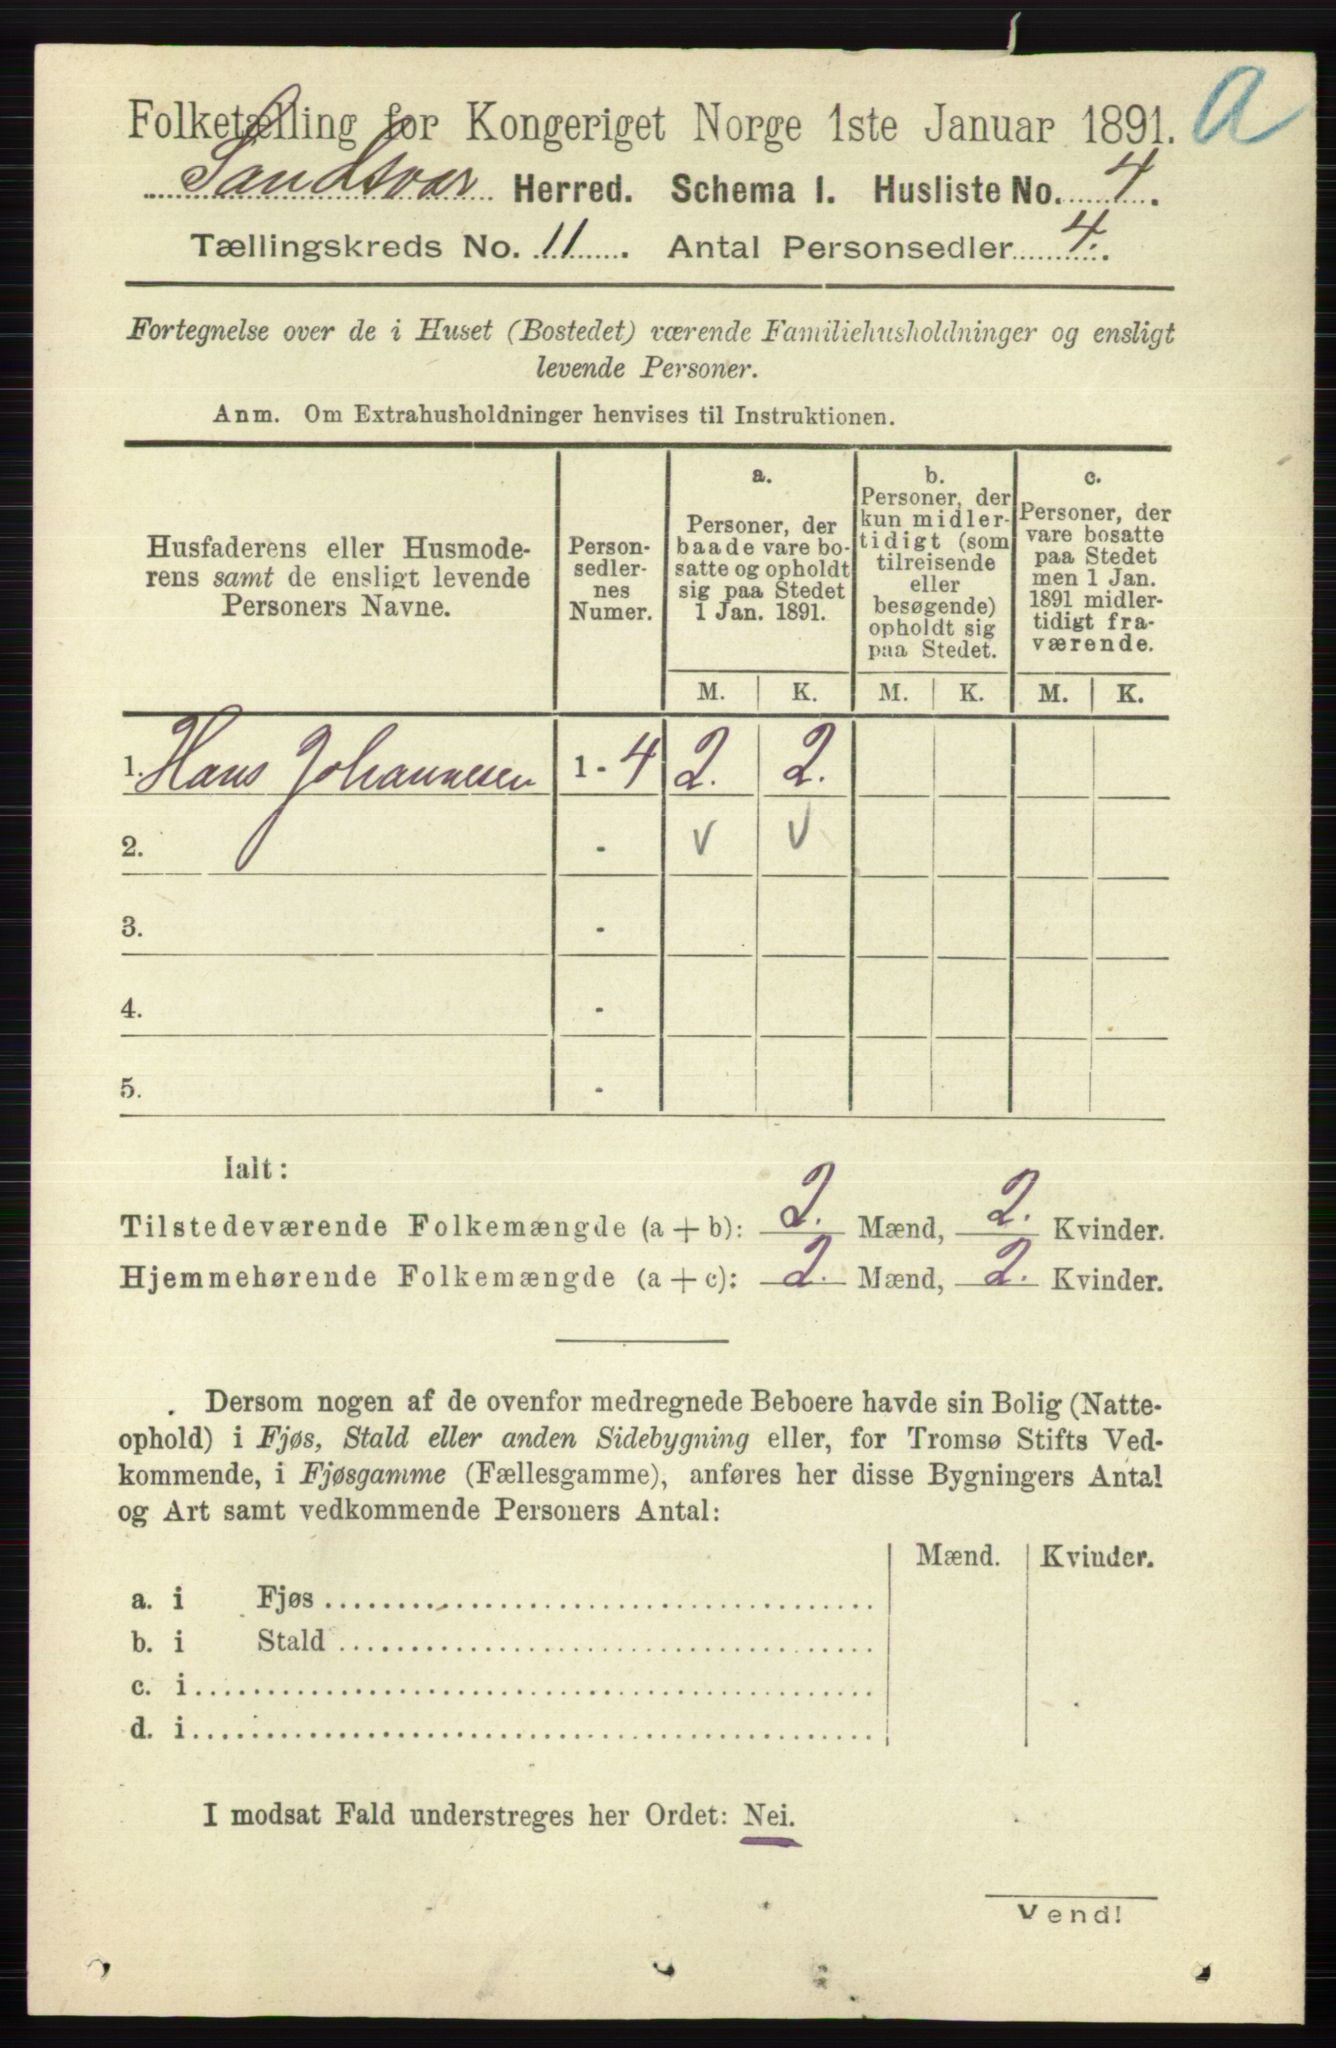 a
Folketælling for Kongeriget Norge 1ste Januar 1891.
Sandsvær Herred. Schema I. Husliste No. 4.
Tællingskreds No. 11. Antal Personsedler 4.
Fortegnelse over de i Huset (Bostedet) værende Familiehusholdninger og ensligt
levende Personer.
Anm. Om Extrahusholdninger henvises til Instruktionen.
Husfaderens eller Husmode-
rens samt de ensligt levende
Personers Navne.
Person-
sedler-
nes
Numer.
a.
Personer, der
baade vare bo-
satte og opholdt
sig paa Stedet
1 Jan. 1891.
b.
Personer, der
kun midler-
tidigt (som
tilreisende
eller
besøgende)
opholdt sig
paa Stedet.
c.
Personer, der
vare bosatte
paa Stedet
men 1 Jan.
1891 midler-
tidigt fra-
værende.
M. K. M. K. M. K.
1. Hans Johannesen 1 - 4 2. 2.
2. - v v
3. -
4. -
5. -
Ialt:
Tilstedeværende Folkemængde (a + b): 2. Mænd, 2. Kvinder.
Hjemmehørende Folkemængde (a + c): 2. Mænd, 2. Kvinder.
Dersom nogen af de ovenfor medregnede Beboere havde sin Bolig (Natte-
ophold) i Fjøs, Stald eller anden Sidebygning eller, for Tromsø Stifts Ved-
kommende, i Fjøsgamme (Fællesgamme), anføres her disse Bygningers Antal
og Art samt vedkommende Personers Antal:
Mænd. Kvinder.
a. i Fjøs
b. i Stald
c. i
d. i
I modsat Fald understreges her Ordet: Nei.
Vend!